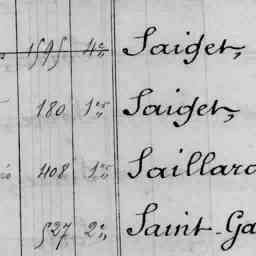 1595 4e Saiget,
180 1er Saiget,
408 1er Saillard
527 2e Saint-Ga